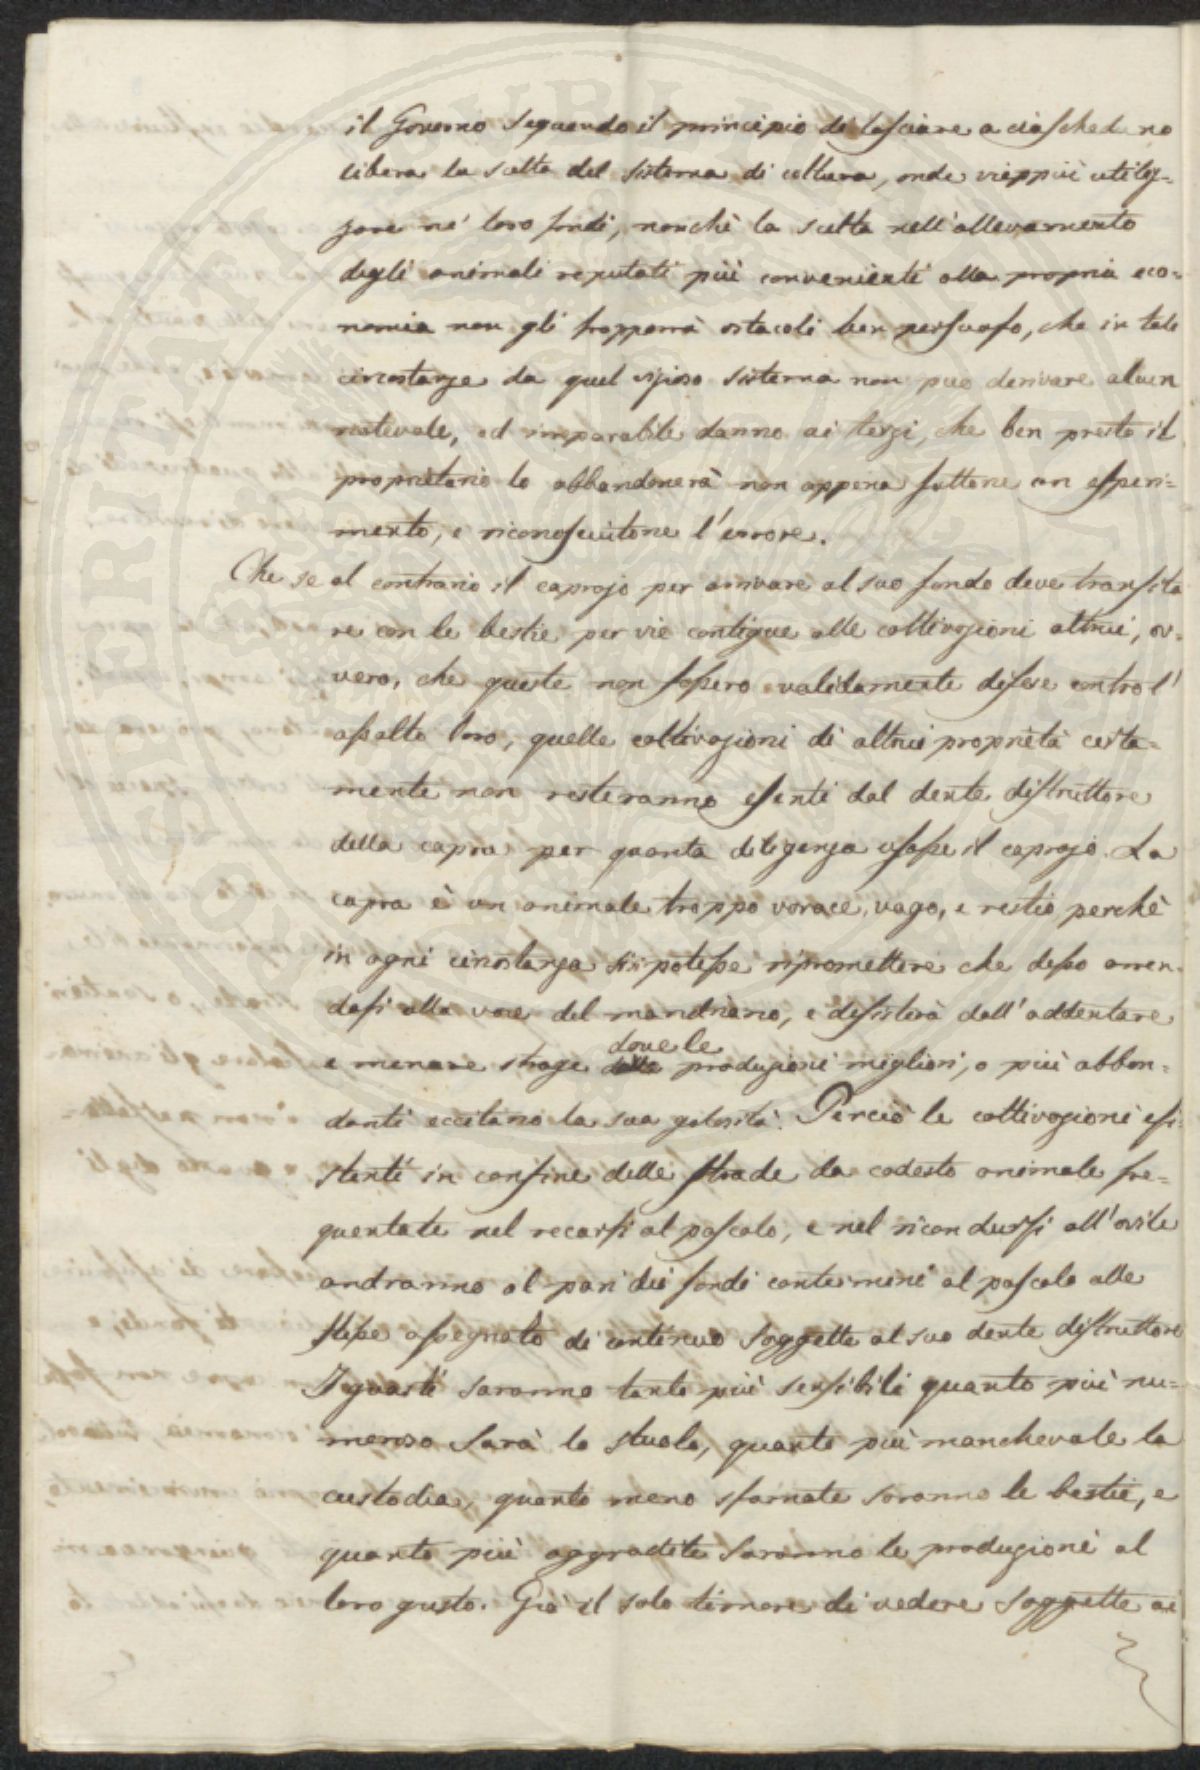 il Governo seguendo il principio di lasciare a ciascheduno
libera la scelta del sistema di coltura, onde vieppiù utiliz=
zare ne' loro fondi, nonchè la scelta nell'allevamento
degli animali reputati più convenienti alla propria eco=
nomia non gli frapporrà ostacoli ben persuaso, che in tale
circostanze da quel vizioso sistema non può derivare alcun
notevole, ed imparabile danno ai terzi, che ben presto il
proprietario lo abbandonerà non appena fattone un esperi=
mento, e riconosciutone l'errore.
Che se al contrario il caprajo per arrivare al suo fondo deve transita
re con le bestie per vie contigue alle coltivazioni altrui, ov=
vero, che queste non fossero validamente difese contro l'
assalto loro, quelle coltivazioni di altrui proprietà certa=
mente non resteranno esenti dal dente distruttore
della capra per quanta diligenza usasse il caprajo. La
capra è un animale troppo vorace, vago, e restio perchè
in ogni circostanza si potesse ripromettere che desso arren=
dasi alla voce del mandriano, e desisterà dall'addentare
e menare strage dove le produzioni migliori, o più abbon=
danti eccitano la sua golosità. Perciò le coltivazioni esi=
stenti in confine delle strade da codesto animale fre=
quentate nel recarsi al pascolo, e nel ricondursi all'ovile
andranno al pari dei fondi contermini al pascolo alle
stesse assegnato di continuo soggette al suo dente distruttore
I guasti saranno tanto più sensibili quanto più nu=
meroso sarà lo stuolo, quanto più manchevole la
custodia, quanto meno sfamate saranno le bestie, e
quanto più aggradite saranno le produzioni al
loro gusto. Già il solo timore di vedere soggette ai
SPERITATI PUBLICAE